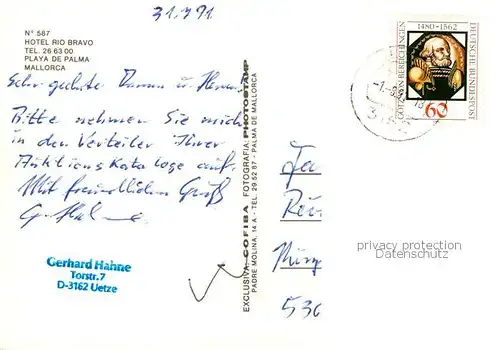 31.7.91
N° 567
HOTEL RIO BRAVO
TEL. 26 63 00
PLAYA DE PALMA
MALLORCA
Sehr geehrte Damen u. Herren
Bitte nehmen Sie mich
in den Verteiler Ihrer
Auktions Kataloge auf.
Mit freundlichem Gruß
G. Hahne
Gerhard Hahne
Torstr.7
D-3162 Uetze
EXCLUSIVA COFIBA - FOTOGRAFIA: PHOTOSTAMP
PADRE MOLINA, 14 A - TEL. 29 52 87 - PALMA DE MALLORCA
1480-1562
GÖTZ VON BERLICHINGEN
DEUTSCHE BUNDESPOST
60
privacy protection
Datenschutz